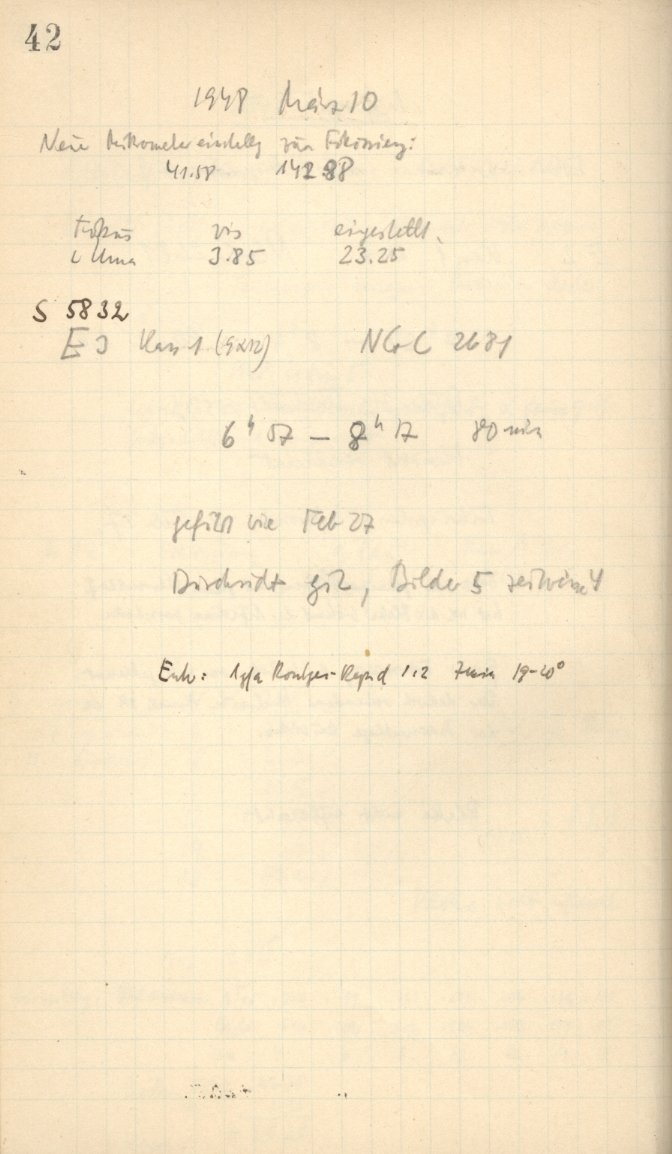 42
1948 März 10
Neue Mikrometereinstellg zur Fokussierg:
41.58 142.98
Fokus vis eingestellt
ι Uma 3.85 23.25
S 5832
E 3 (9x12) NGC 2681
6h 57 — 8h 17 80 min
geführt wie Feb 27
Durchsicht gut, Bilder 5 zeitweise 4
Entw: Agfa Röntgen-Rapid 1:2 7 min 19-20°